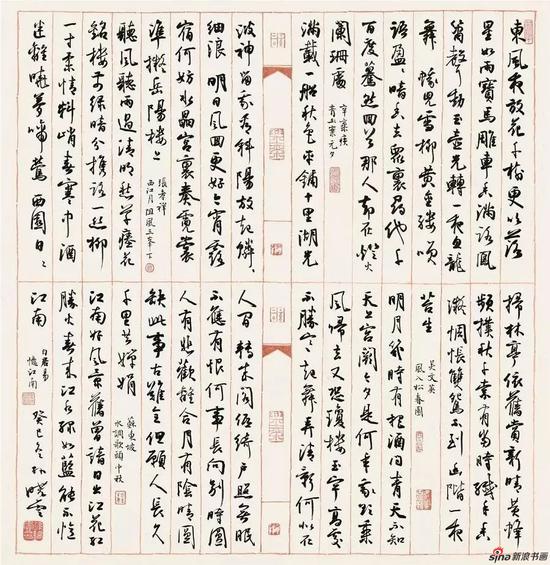 東風夜放花千樹更吹落
星如雨寶馬雕車香滿路鳳
簫聲動玉壺光轉一夜魚龍
舞蛾兒雪柳黃金縷笑
語盈盈暗香去眾裏尋他千
百度驀然回首那人卻在燈火
闌珊處
辛棄疾
青玉案元夕
滿載一船秋色平鋪十里湖光
波神留我看斜陽放起鱗鱗
細浪明日風回更好今宵露
宿何妨水晶宮裏奏霓裳
準擬岳陽樓上
張孝祥
西江月阻風三峯下
聽風聽雨過清明愁草瘞花
銘樓前綠暗分攜路一絲柳
一寸柔情料峭春寒中酒
迷離曉夢啼鶯西園日日
掃林亭依舊賞新晴黃蜂
頻撲秋千索有當時纖手香
凝惆悵雙鴛不到幽階一夜
苔生
吳文英
風入松春園
明月幾時有把酒問青天不知
天上宮闕今夕是何年我欲乘
風歸去又恐瓊樓玉宇高處
不勝寒起舞弄清影何似在
人間轉朱閣低綺戶照無眠
不應有恨何事長向別時圓
人有悲歡離合月有陰晴圓
缺此事古難全但願人長久
千里共嬋娟
蘇東坡
水調歌頭中秋
江南好風景舊曾諳日出江花紅
勝火春來江水綠如藍能不憶
江南
白居易
憶江南
癸巳冬
sina新浪书画